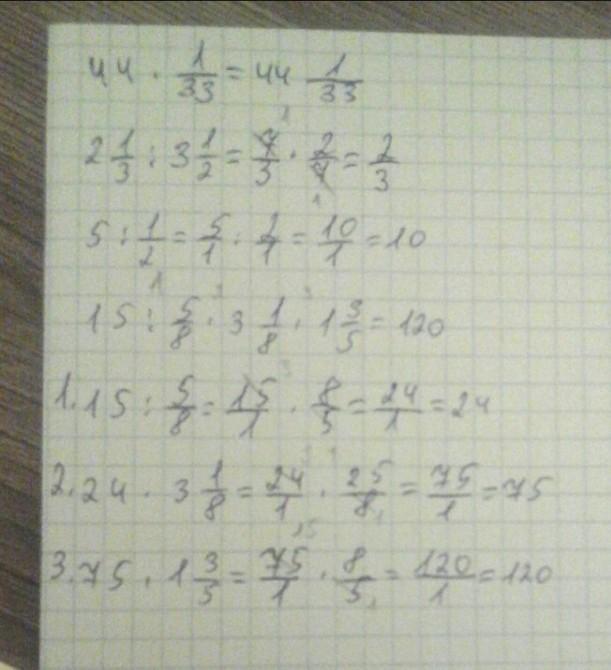 44 · 1/33 = 44 1/33
2 1/3 : 3 1/2 = 7/3 · 2/7 = 2/3
5 : 1/2 = 5/1 : 2/1 = 10/1 = 10
15 : 5/8 · 3 1/8 · 1 3/5 = 120
1. 15 : 5/8 = 15/1 · 8/5 = 24/1 = 24
2. 24 · 3 1/8 = 24/1 · 25/8 = 75/1 = 75
3. 75 · 1 3/5 = 75/1 · 8/5 = 120/1 = 120